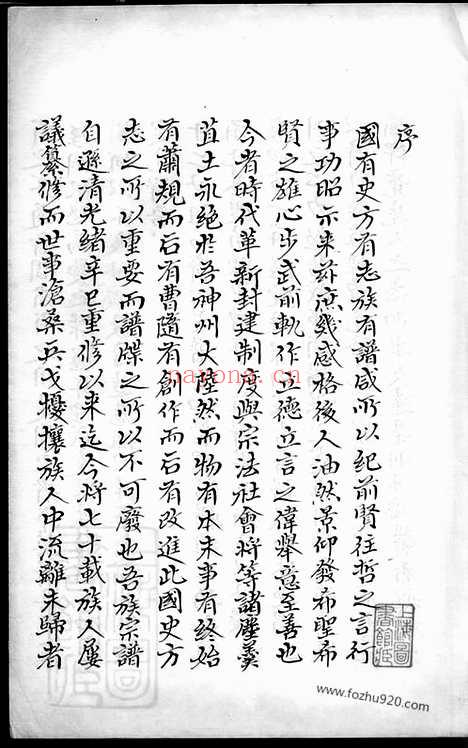 序
國有史方有志族有譜咸所以紀前賢往哲之言行
事功昭示來茲庶幾感格後人油然景仰發希聖希
賢之雄心步武前軌作立德立言之偉舉意至善也
今者時代革新封建制度與宗法社會將等諸塵羹
苴土永絕於吾神州大陸然而物有本末事有終始
有蕭規而后有曹隨有創作而后有改進此國史方
志之所以重要而譜牒之所以不可廢也吾族宗譜
自遜清光緒辛巳重修以來迄今將七十載族人屢
議纂修而世事滄桑兵戈擾攘族人中流離未歸者
上海圖書館藏
nayong.cn
www.fozhu920.com